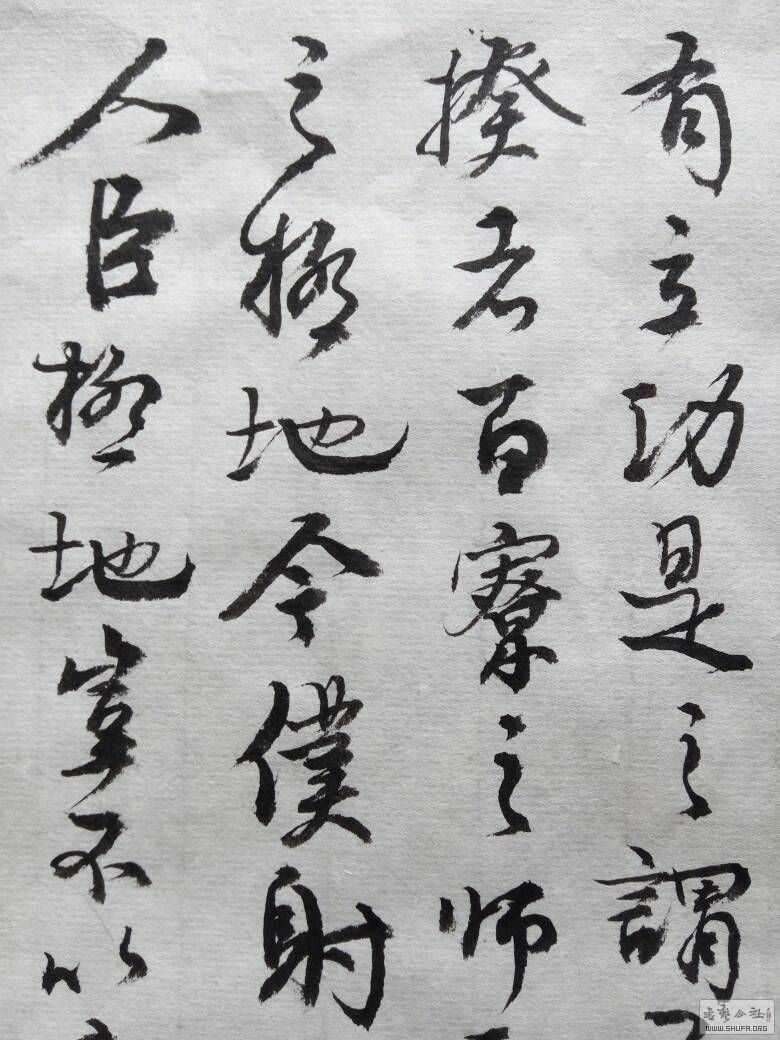 有立功是之謂
揆者百寮之师
之極地今僕射
人臣極地豈不以
書藝公社
WWW.SHUFA.ORG